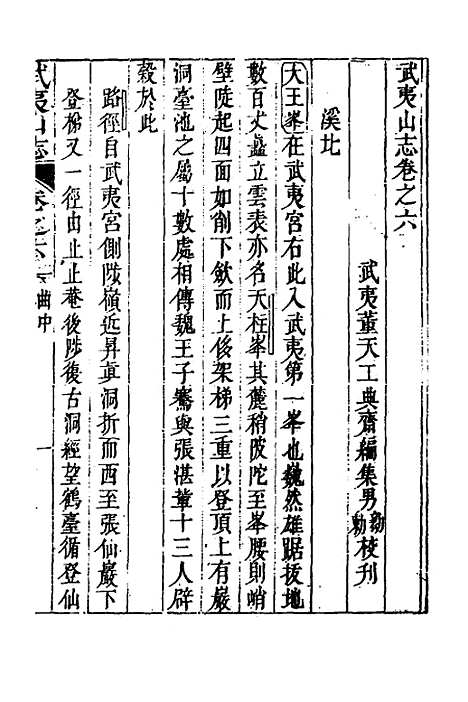 武夷山志卷之六
武夷董天工典齋編集男勷勅校刋
溪北
大王峯在武夷宮右此入武夷第一峯也巍然雄踞拔地
數百丈矗立雲表亦名天柱峯其麓稍陂陀至峯腰則峭
壁陡起四面如削下斂而上侈架梯三重以登頂上有巖
洞臺池之屬十數處相傳魏王子騫與張湛輩十三人辟
穀於此
路徑自武夷宮側陟嶺近昇眞洞折而西至張仙巖下
登梯又一徑由止止菴後陟復古洞經望鶴臺循登仙
武夷山志 卷之六 一曲中 一